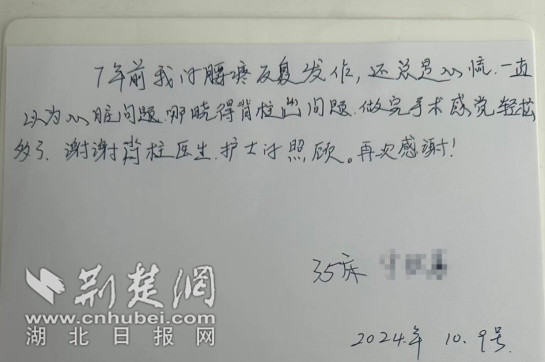 7年前我讨腰疼反复发作,还总是心慌.一直
以为心脏问题,哪晓得脊柱出问题.做完手术感觉轻松
多了.谢谢脊柱医生.护士讨照顾。再次感谢!
35床
2024年.10.9号.
荆楚网
www.cnhubei.com
湖北日报网